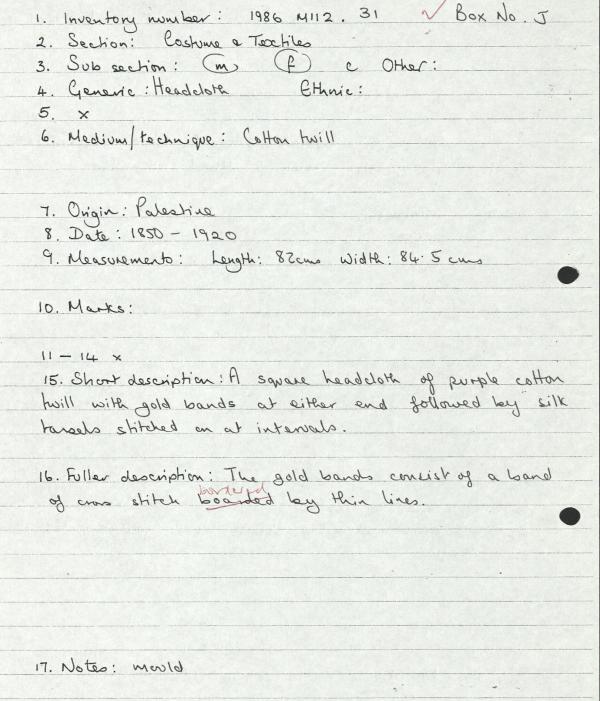 1. Inventory number: 1986 M112. 31 ✓ Box No. J
2. Section: Costume & Textiles
3. Sub section: m f c Other:
4. Generic: Headcloth Ethnic:
5. x
6. Medium/technique: Cotton twill
7. Origin: Palestine
8. Date: 1850 - 1920
9. Measurements: Length: 82cms Width: 84.5 cms
10. Marks:
11 - 14 x
15. Short description: A square headcloth of purple cotton
twill with gold bands at either end followed by silk
tassels stitched on at intervals.
16. Fuller description: The gold bands consist of a band
bordered
of cross stitch boarded by thin lines.
17. Notes: mould